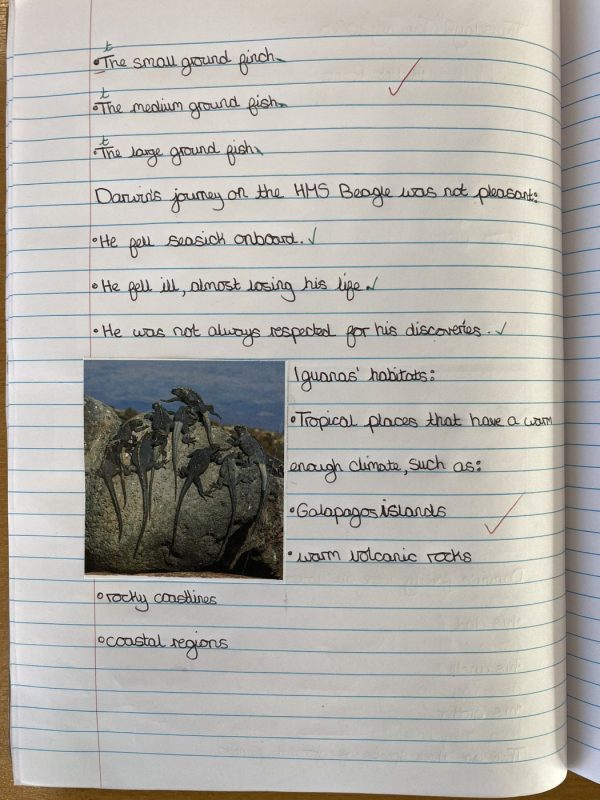 •The small ground finch.
t
•The medium ground fish.
t
•The large ground fish.
t
Darwin's journey on the HMS Beagle was not pleasant:
•He fell seasick onboard.
•He fell ill, almost losing his life.
•He was not always respected for his discoveries.
Iguanas' habitats:
•Tropical places that have a warm
enough climate, such as:
•Galapagos islands
•warm volcanic rocks
•rocky coastlines
•coastal regions